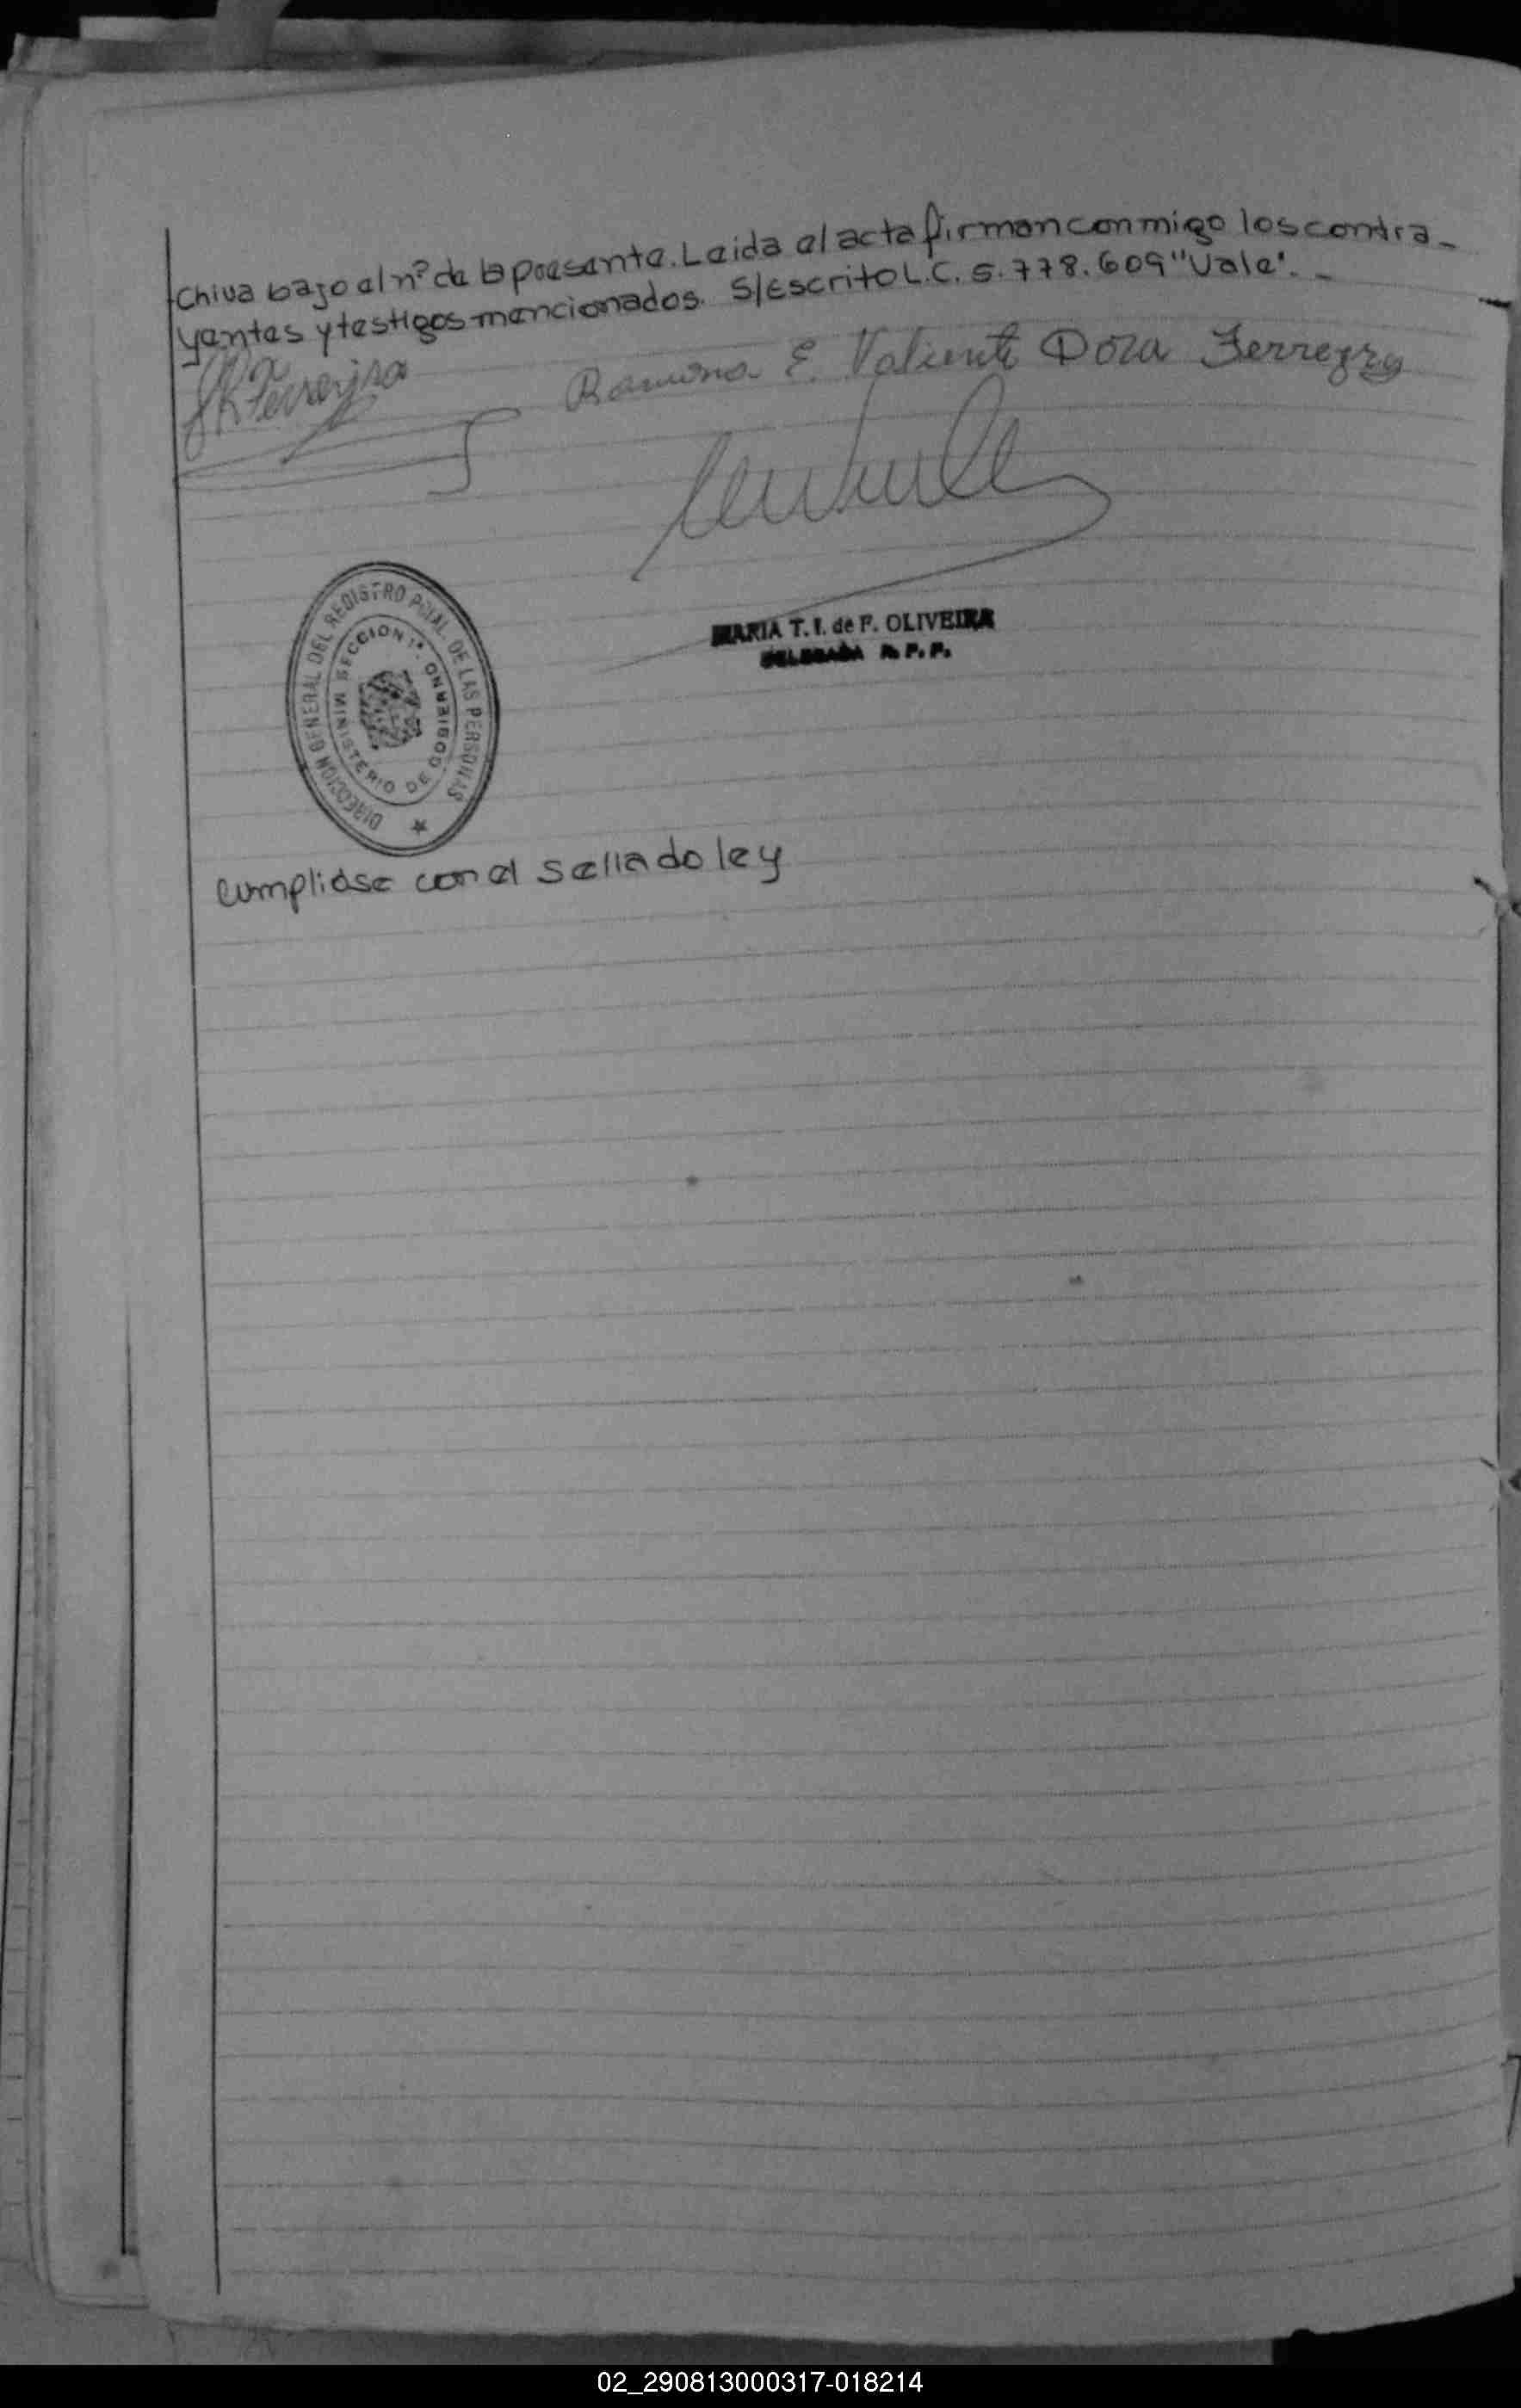 chiva bajo el nº de la presente. Leida el acta firman conmigo los contra-
yentes y testigos mencionados. S/Escrito L.C. 5.778.609 "Vale". -
Ferreyra
Ramona E. Valiente Dora Ferreyra
MARIA T. I. de F. OLIVEIRA
DELEGADA R. P. P.
DIRECCION GENERAL DEL REGISTRO PCIAL. DE LAS PERSONAS
SECCION 1ª.
MINISTERIO DE GOBIERNO
cumpliose con el sellado ley
02_290813000317-018214